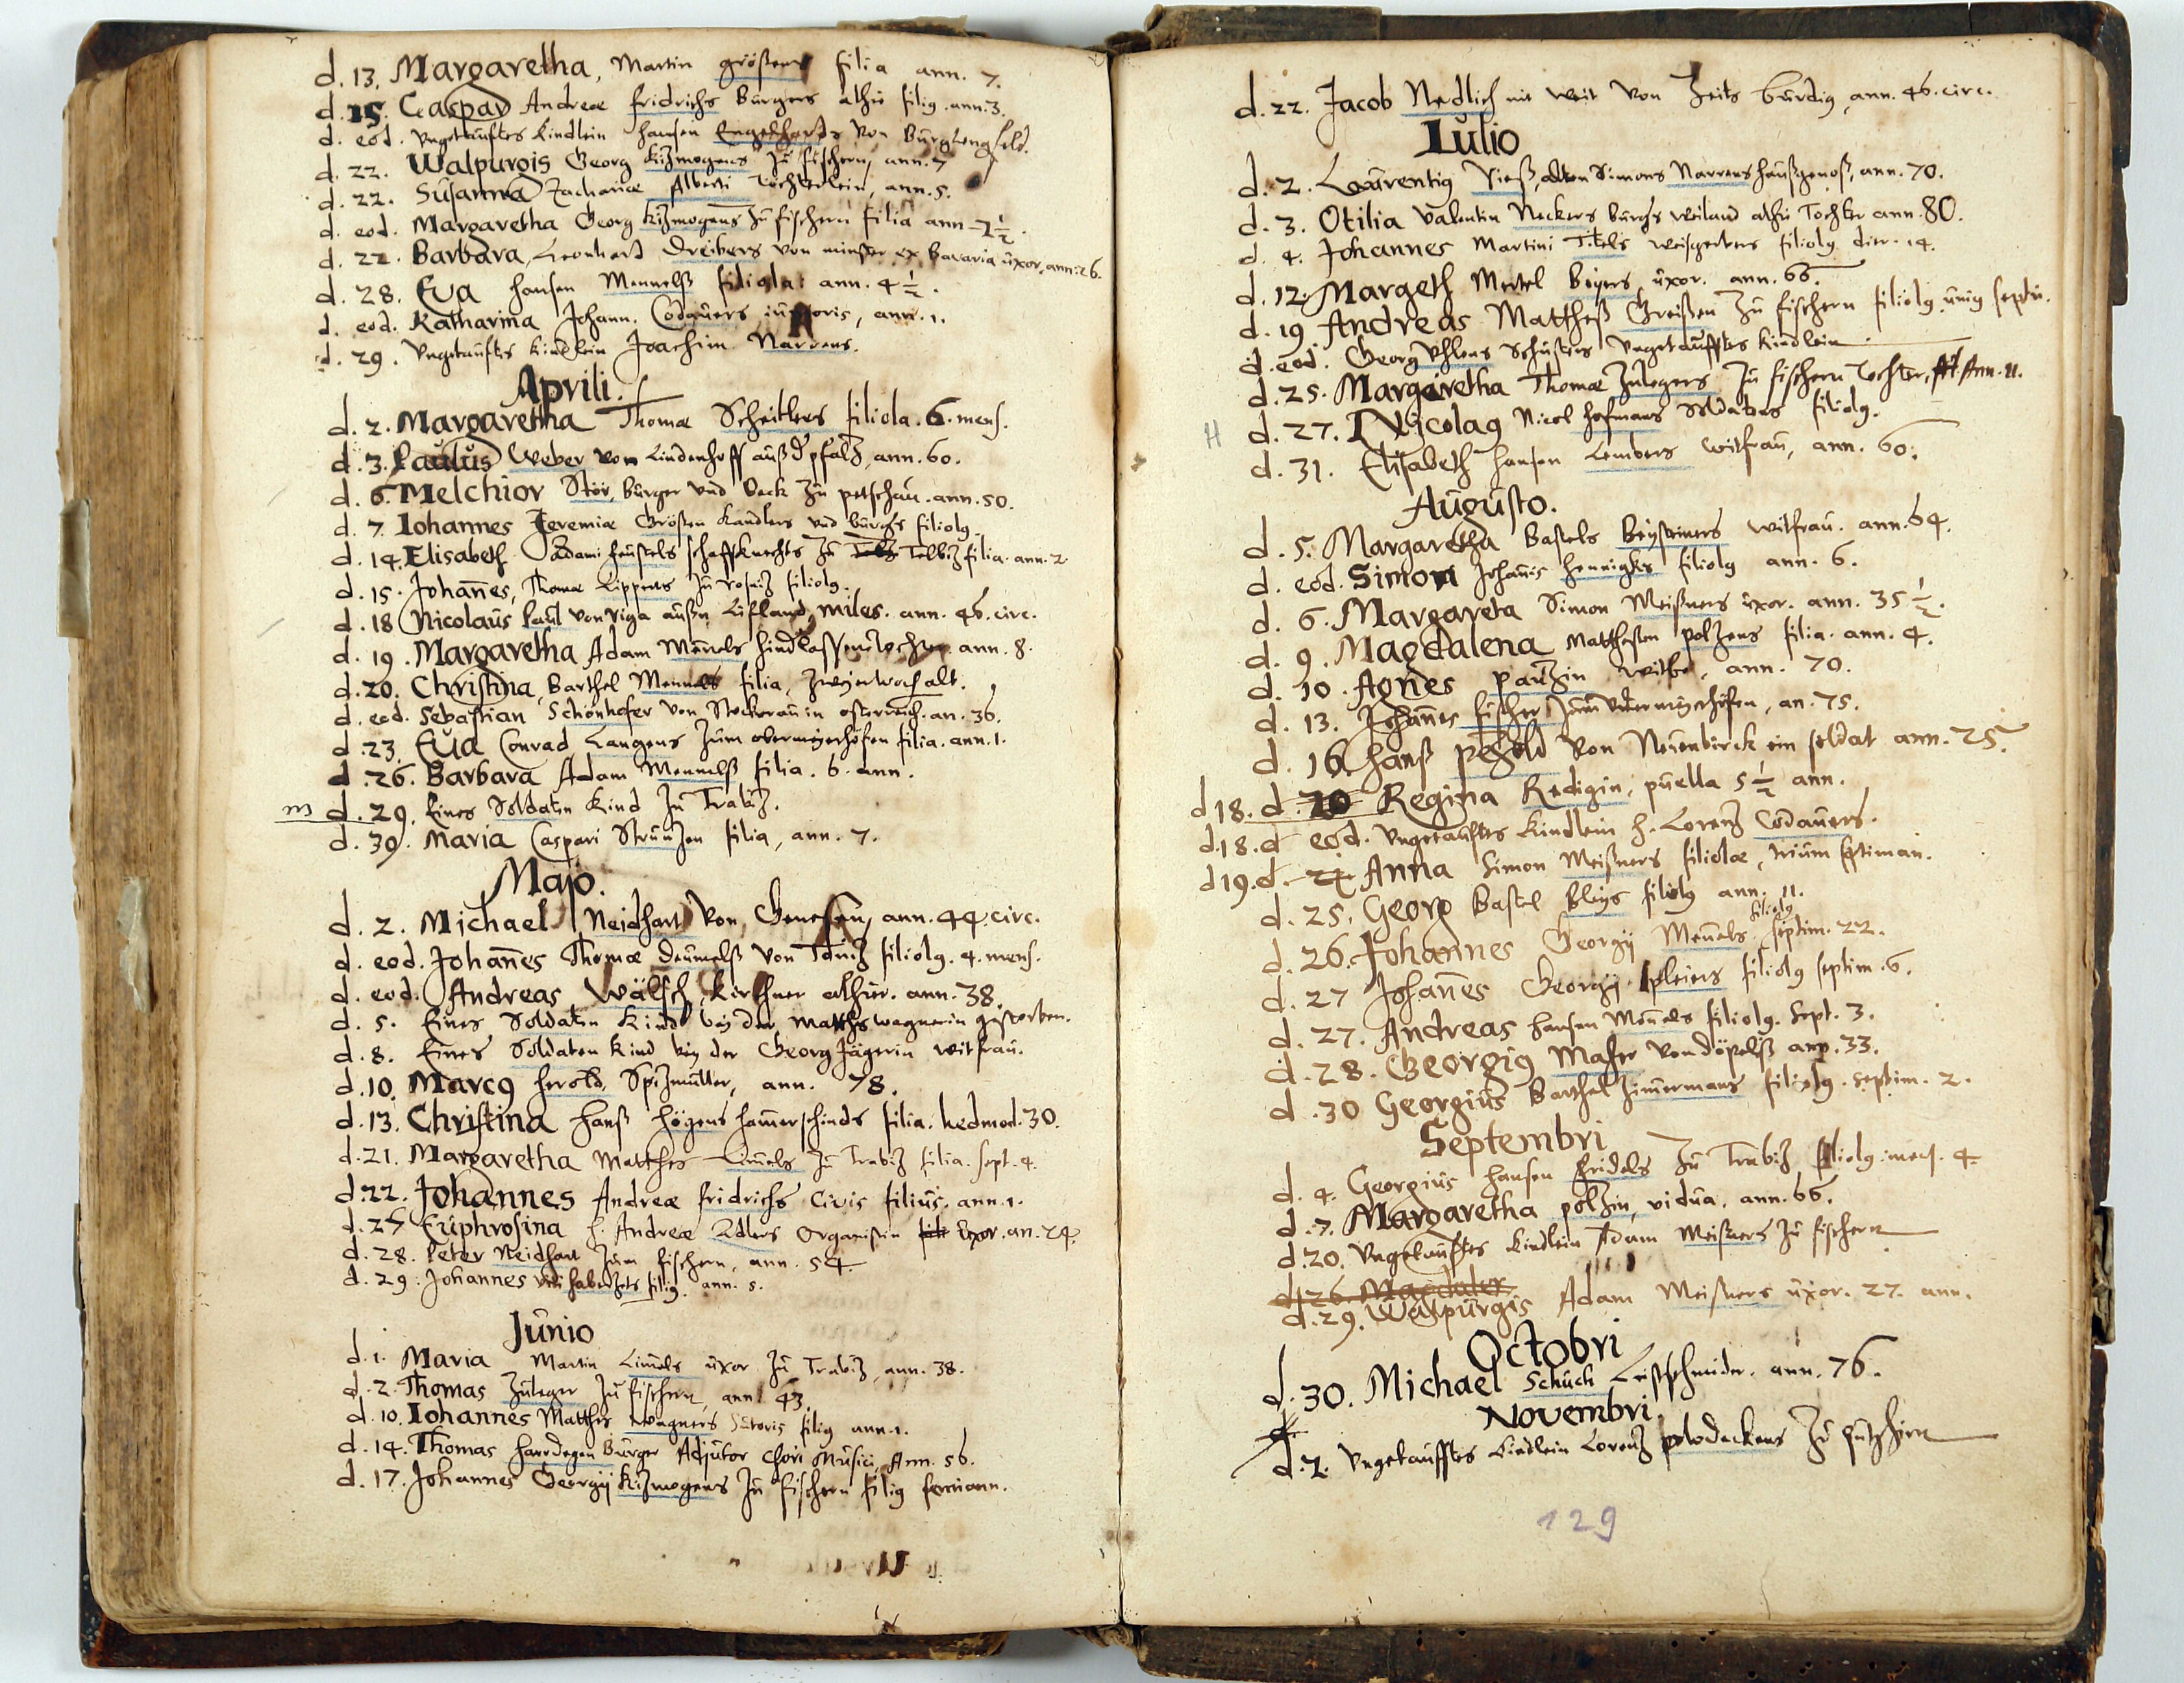 d. 13. Margaretha, Martin größens filia ann. 7.
d. 15. Caspar Andreæ fridrichs Bürgers alhie filig. ann. 3.
d. eod. Vngetaufftes Kindlein hansen Engelhards von Burglengfeld.
d. 22. Walpurgis Georg Kizmogens zu fischern, ann. 7
d. 22. Susanna Zachariæ Alberti Töchterlein, ann. 5.
d. eod. Margaretha Georg Kizmogens zu fischern filia ann 1/2.
d. 22. Barbara, Leonhard Dreibers von minster ex Bavaria uxor, ann: 26.
d. 28. Eva hansen Mennelß filiola: ann. 4 1/2.
d. eod. Katharina Johann. Codauers ann. 1.
d. 29. Vngetaufts Kindlein Joachim Narrens.
Aprili.
d. 2. Margaretha Thomæ Scheitlers filiola. 6. mens.
d. 3. Paulus Weber von Lindenhoff auß d' pfalz, ann. 60.
d. 6. Melchior Stör, Bürger vnd Beck zu petschau. ann. 50.
d. 7. Iohannes Jeremiæ Größen Kandlers vnd bürgers filiolg
d. 14. Elisabeth Adami feustels schaffknechts zu Telbiz filia. ann. 2
d. 15. Johannes, Thomæ Lipperts zu rosniz filiolg.
d. 18 Nicolaus Paul von Riga außn Lifland, miles. ann. 46. circ.
d. 19. Margaretha Adam Mennels tochter ann. 8.
d. 20. Christina, Barthel Mennels filia, zweyer woch alt.
d. eod. Sebastian Schönhofer von Stockerau in osterreich. an. 36.
d. 23. Eva Conrad Langens zum obermeyerhöfen filia. ann. 1.
d. 26. Barbara Adam Mennelß filia. 6. ann.
m d. 29. Eines Soldaten Kind zu Trabiz.
d. 30. Maria Caspari Strunzen filia, ann. 7.
Majo.
d. 2. Michael Neidhart von ann. 44. circ.
d. eod. Johannes Thomæ deumelß von filiolg. 4. mens.
d. eod. Andreas Wälsch, Kirchner alhier. ann. 38.
d. 5. Eines Soldaten Kind bey der Matths wagnerin gestorben.
d. 8. Eines Soldaten Kind bey der Georg Jägerin witfrau.
d. 10. Marcg herold, Spizmüller, ann. 78.
d. 13. Christina Hanß högens hamerschmids filia. hedmod. 30.
d. 21. Margaretha Matthes Limels zu Trabiz filia. sept. 4.
d. 22. Johannes Andreæ fridrichs civis filius. ann. 1.
d. 25 Euphrosina h. Andreæ Edlers Organistin uxor. an. 24.
d. 28. Peter Neidhart zum fischern, ann. 54
d. 29. Johannes filig. ann. 5.
Junio
d. 1. Maria Martin Limels uxor zu Trabiz, ann. 38.
d. 2. Thomas Zuleger zu fischern, ann. 63.
d. 10. Iohannes Matthes wagners Sutoris filig ann. 1.
d. 14. Thomas Harrdegen Bürger Adjutor Chori Musici, Ann. 56.
d. 17. Johannes Georgij Kizmogens zu fischern filig
d. 22. Jacob Nedlich mit weit von Zeits bürdig, ann. 46. circ.
Iulio
d. 2. Laurentig Vieß, alten Simons Narrens haußgenoß, ann. 70.
d. 3. Otilia Valentin Neckers burgers weiland alhie Tochter ann. 80.
d. 4. Johannes Martini Titels weisgerbers filiolg dier. 14.
d. 12. Margeth Mertel Beyers uxor. ann. 66.
d. 19. Andreas Mattheß Greißen zu fischern filiolg. unig septi.
d. eod. Georg Vhlens Schusters Vngetaufftes Kindlein
d. 25. Margaretha Thomæ Zulegers zu fischern Tochter, Ann. 11.
H d. 27. Nicolag Nicol hofmans Soldatens filiolg.
d. 31. Elisabeth Hansen Lembers witfrau, ann. 60.
Augusto.
d. 5. Margaretha Bastels Beysteiners witfrau. ann. 64.
d. eod. Simon Johannis hennigks filiolg ann. 6.
d. 6. Margareta Simon Meißners uxor. ann. 35 1/2.
d. 9. Magdalena Matthesen polzens filia. ann. 4.
d. 10. Agnes pauzin witbe, ann. 70.
d. 13. Johannes fischer zum vndermeyerhöfen, an. 75.
d. 16. Hanß pezold von Neuenbirck ein soldat ann. 25.
d 18. d. 20 Regina Redigin, puella 5 1/2 ann.
d. 18. d eod. Vngetaufftes Kindlein h. Lorenz Codauers.
d 19. d. 24 Anna Simon Meißners filiolæ, trium septiman.
d. 25. Georg Bastel Bleys filiolg ann. 11.
d. 26. Johannes Georgij Mennels filiolg septim. 22.
d. 27 Johannes Georgij pleiers filiolg septim. 6.
d. 27. Andreas hansen Mennels filiolg. Sept. 3.
d. 28. Georgig Maser von döpelß ann. 33.
d. 30 Georgius Barthel Zimmermans filiolg. septim. 2.
Septembri
d. 4. Georgius hansen fridels zu Trabiz filiolg. mens. 4.
d. 7. Margaretha polzin, vidua. ann. 66.
d. 20. Vngetaufftes Kindlein Adam Meisners zu fischern
d. 26. Magdaler
d. 29. Walpurgis Adam Meisners uxor. 27. ann.
Octobri
d. 30. Michael Schuch Leistschneider. ann. 76.
Novembri.
d. 2. Vngetaufftes Kindlein Lorenz zu
129